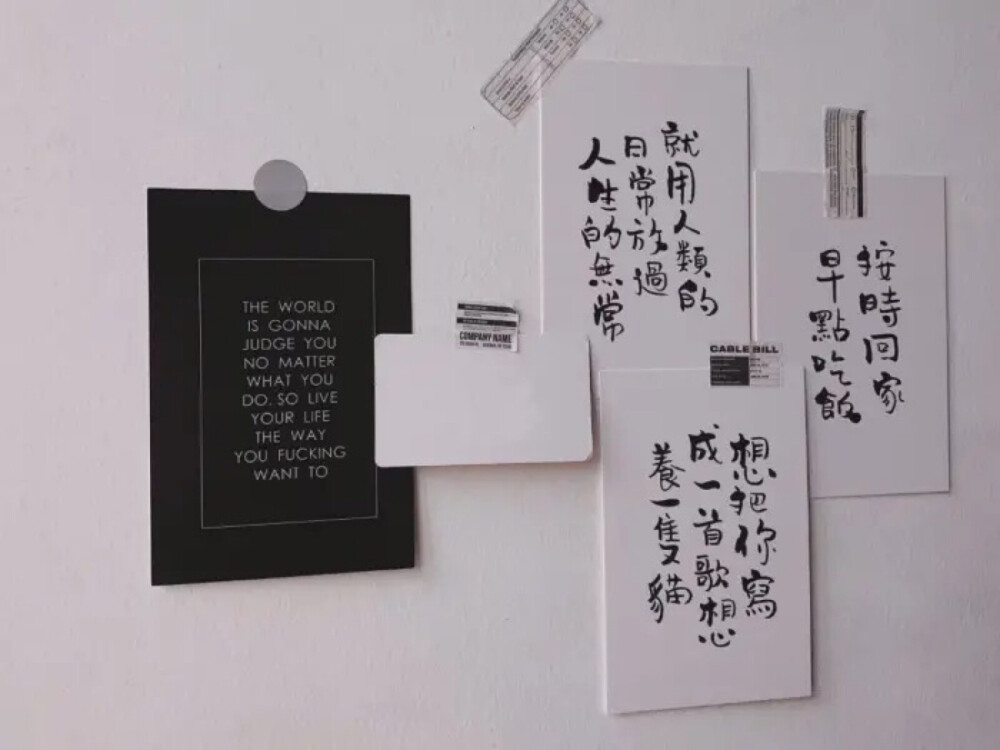 THE WORLD
IS GONNA
JUDGE YOU
NO MATTER
WHAT YOU
DO. SO LIVE
YOUR LIFE
THE WAY
YOU FUCKING
WANT TO
COMPANY NAME
就用人類的
日常放過
人生的無常
CABLE BILL
想把你寫
成一首歌想
養一隻貓
按時回家
早點吃飯